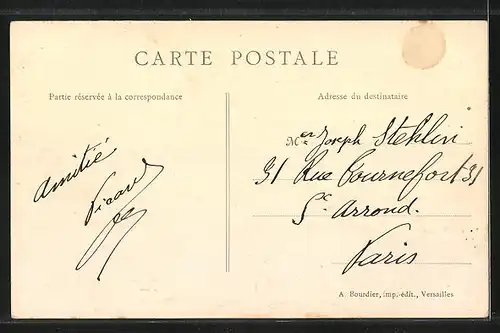 CARTE POSTALE
Partie réservée à la correspondance
Adresse du destinataire
Amitié
Picard
Mer Joseph Stehlin
31 Rue Tournefort 31
5e Arrond.
Paris
A. Bourdier, imp.-édit., Versailles